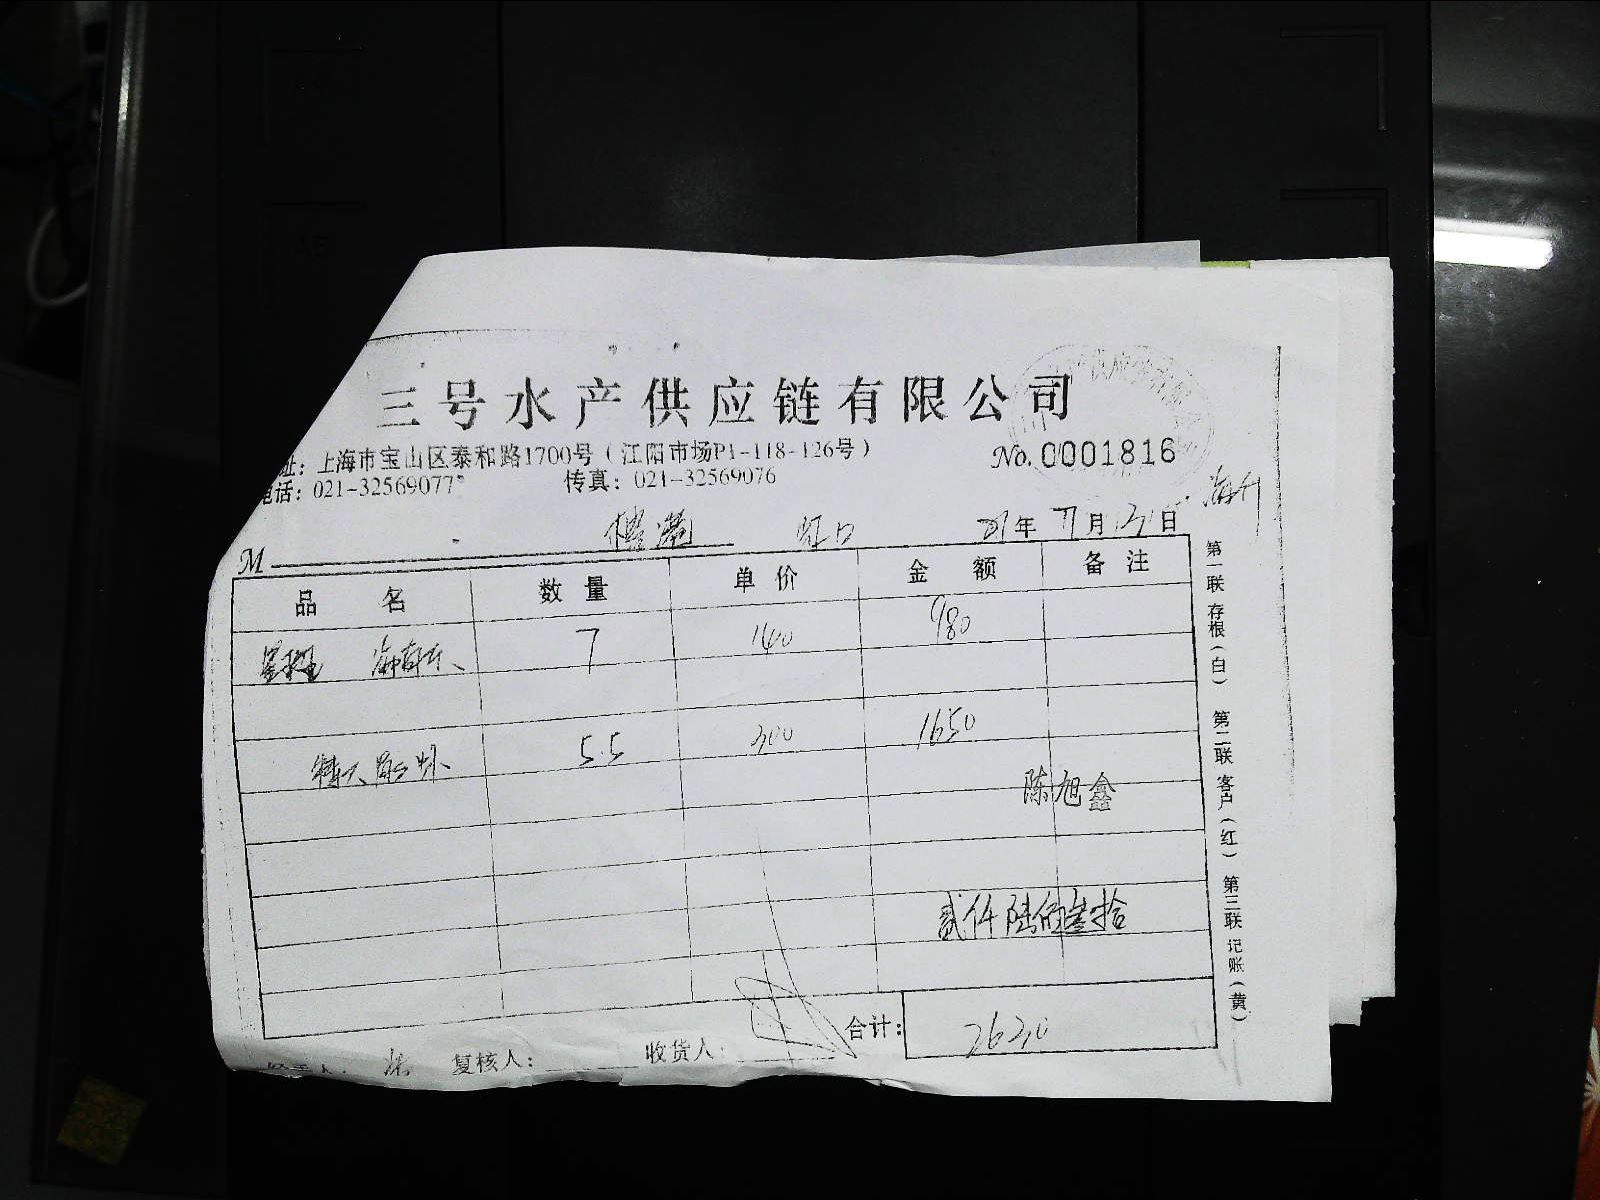 三号水产供应链有限公司
址：上海市宝山区泰和路1700号（江阳市场P1-118-126号）
No.0001816
电话：021-32569077 传真：021-32569076
虹口 年 月 日
M
品名 数量 单价 金额 备注
7 140 980
特大 虾 5.5 300 1650
陈旭鑫
贰仟陆佰叁拾
合计： 2630
复核人： 收货人：
第一联 存根（白） 第二联 客户（红） 第三联 记账（黄）